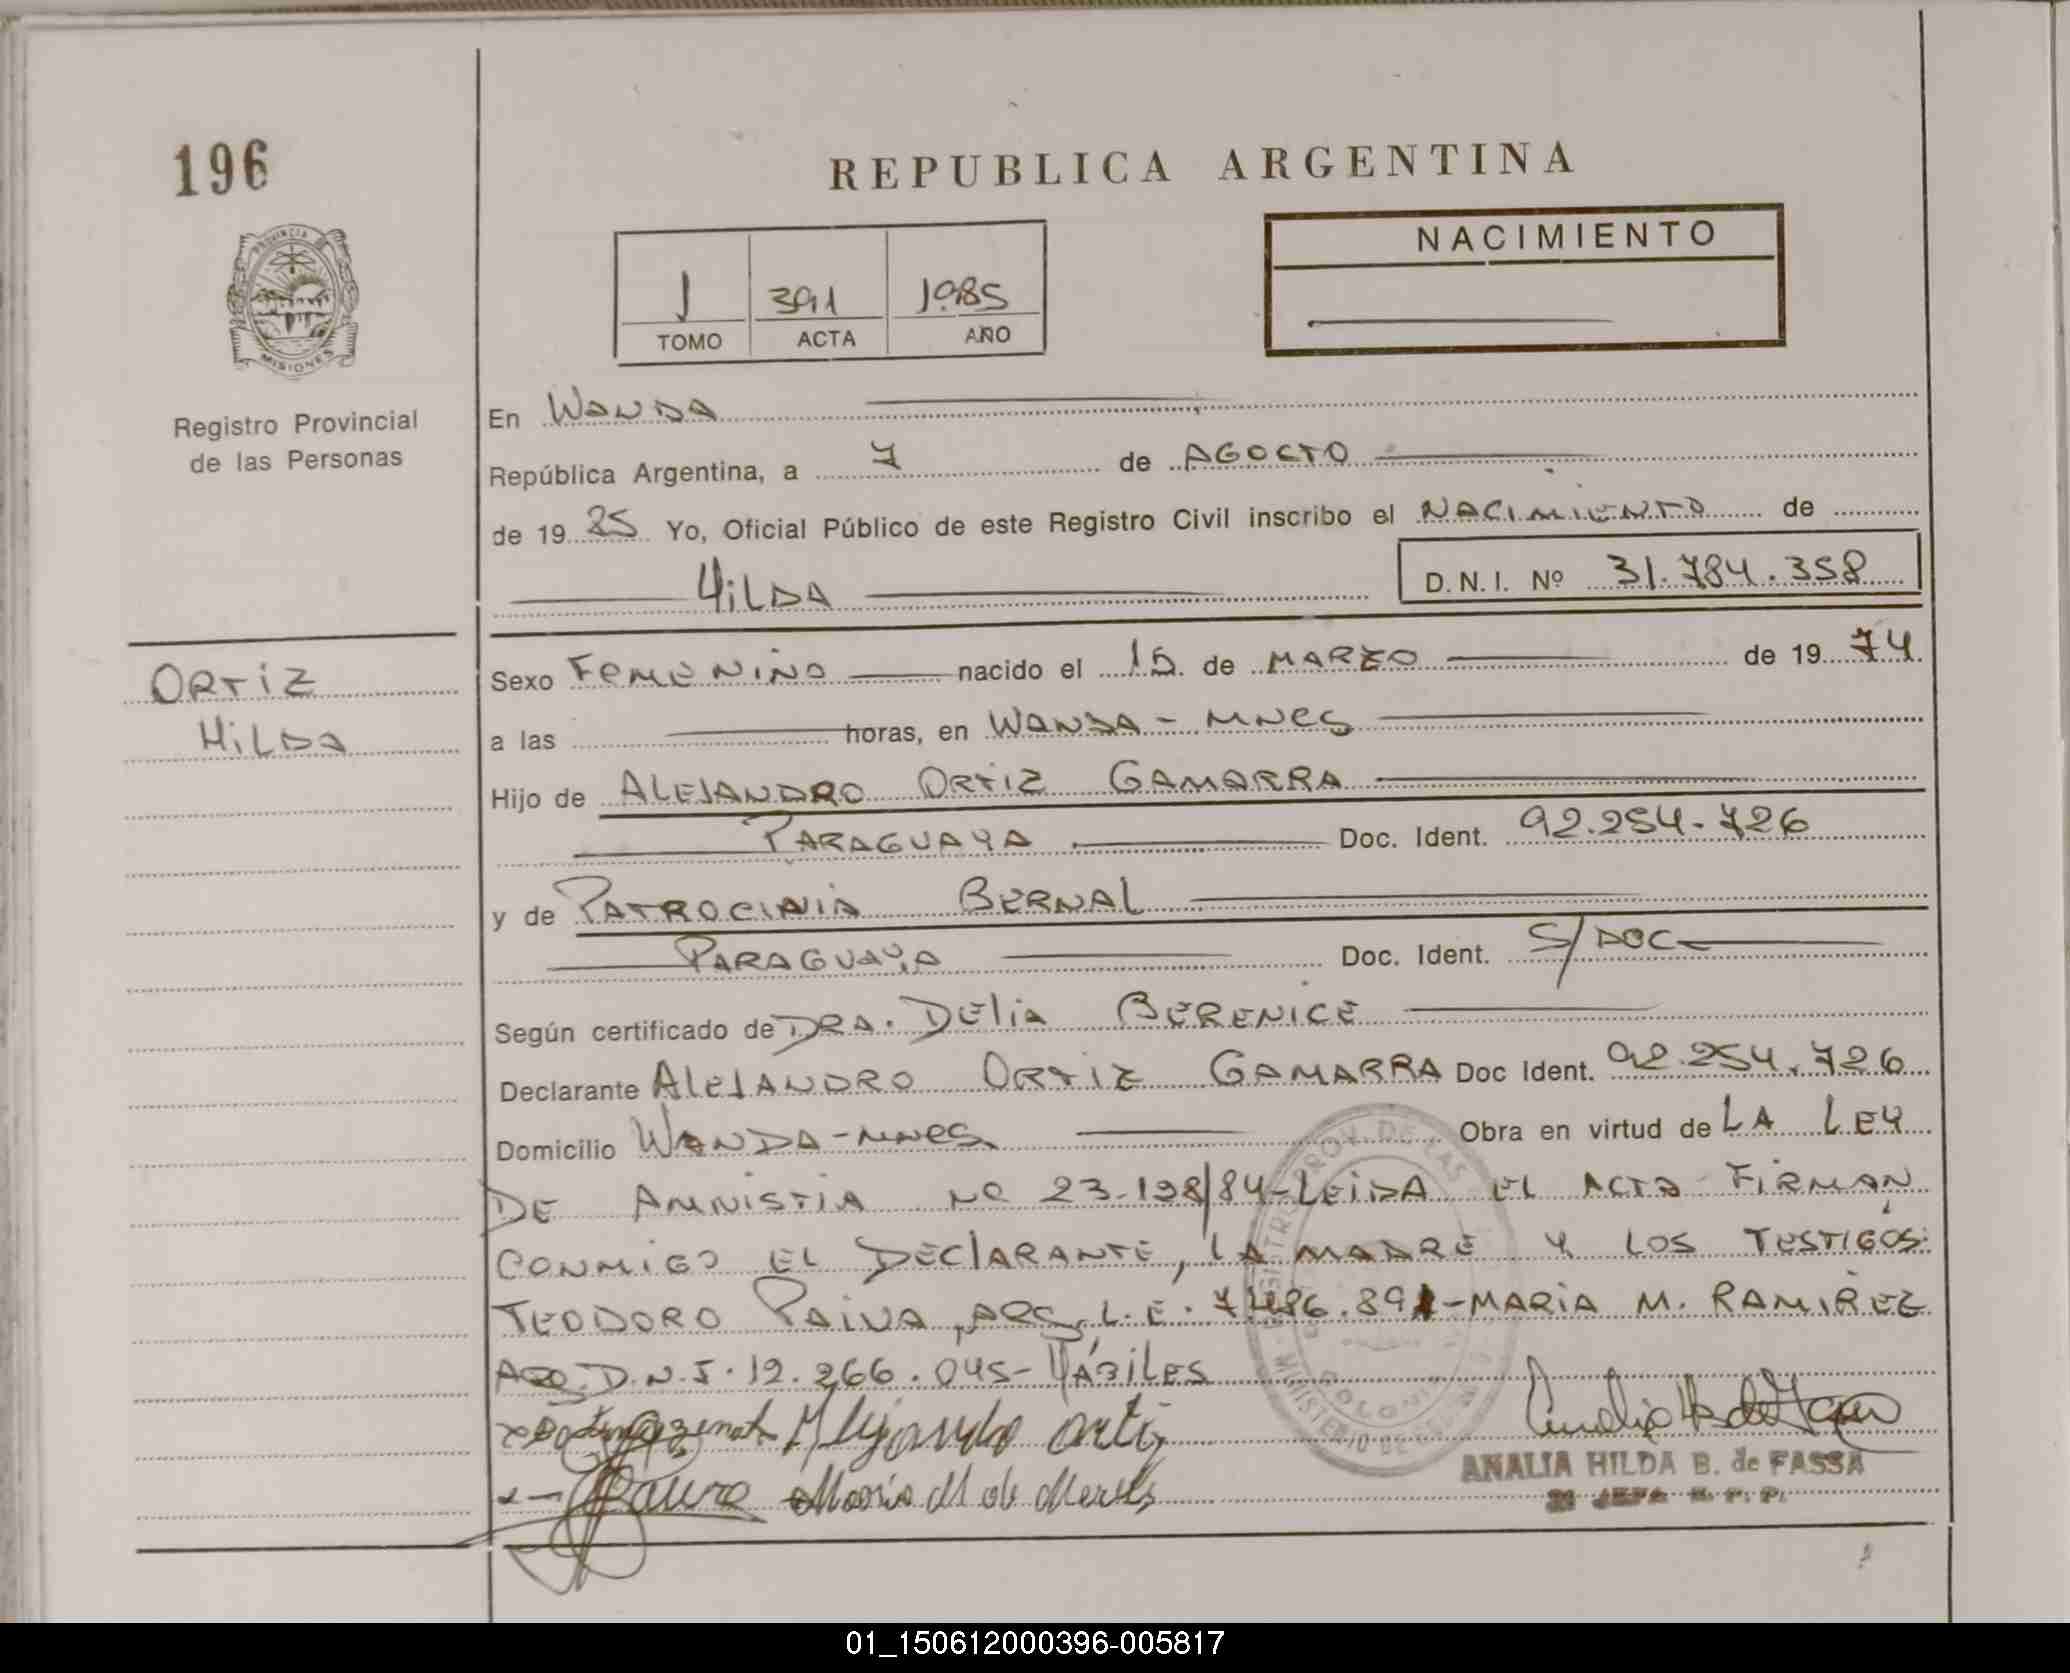 196
REPUBLICA ARGENTINA
PROVINCIA
MISIONES
Registro Provincial
de las Personas
NACIMIENTO
I 391 1985
TOMO ACTA AÑO
En WANDA
República Argentina, a 7 de AGOCTO
de 19 85 Yo, Oficial Público de este Registro Civil inscribo el NACIMIENTO de
HILDA D.N.I. Nº 31.784.358
ORTIZ
HILDA
Sexo FEMENINO nacido el 15 de MARZO de 19 74
a las horas, en WANDA - MNES
Hijo de ALEJANDRO ORTIZ GAMARRA
PARAGUAYA Doc. Ident. 92.254.726
y de PATROCINIA BERNAL
PARAGUAYA Doc. Ident. S/DOC
Según certificado de DRA. DELIA BERENICE
Declarante ALEJANDRO ORTIZ GAMARRA Doc Ident. 92.254.726
Domicilio WANDA-MNES Obra en virtud de LA LEY
DE AMNISTIA Nº 23.198/84-LEIDA EL ACTA FIRMAN
CONMIGO EL DECLARANTE, LA MADRE Y LOS TESTIGOS:
TEODORO PAIVA, ARG. L.E. 7.486.891-MARIA M. RAMIREZ
ARG. D.N.I. 12.266.045- HÁBILES
Alejandro Ortiz
Maria M de
ANALIA HILDA B. de FASSA
JEFA R. P. P.
01_150612000396-005817